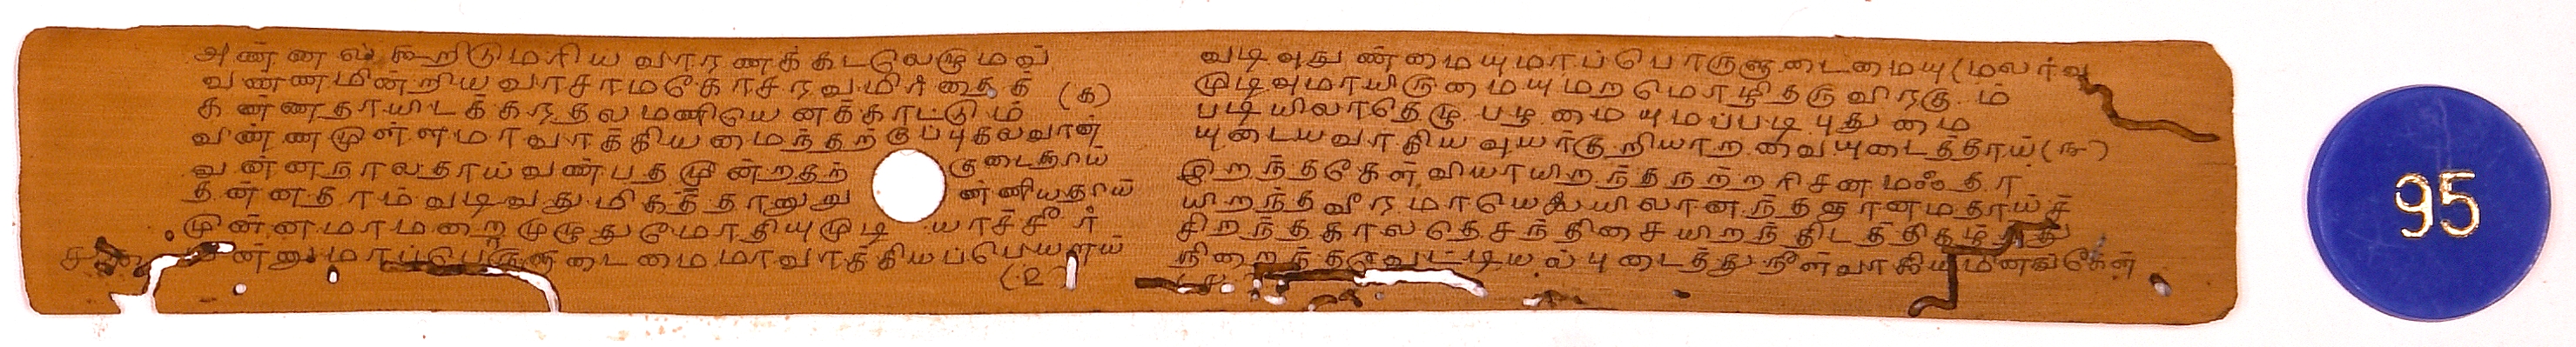 அண்ணல் கூறிடுமரிய வாரணக்கடலெழுமவ்
வண்ணமின்றிய வாசாமகோசரவமிர்தைத் (க)
கண்ணதாயிடக்கரதலமணியெனக்காட்டும்
வண்ணமுள்ளமாவாக்கியமைந்தற்குப்புகலவான்
வன்னநாலதாய்வண்பதமூன்றதற் குடைத்தாய்
தன்னதாம்வடிவதுமிகத்தானுறு ன்னியதாய்
முன்னமாமறைமுழுதுமோதியுமுடி யாச்சீர்
மன்னுமாப்பொருளுடைமைமாவாக்கியப்பெயராய்
(உ)
வடிவதுண்மையுமாப்பொருளுடைமையு
முடிவுமாயிருமையுமறமொழிதருவிரகும்
படியிலாதெழுபழமையுமப்படிபுதுமை
யுடையவாகியவுயர்குறியாறவையுடைத்தாய் (ங)
இறந்தகேள்வியாயிறந்தநற்றரிசனமஃதா
யிறந்தவீரமாயெலையிலானந்தஞானமதாய்ச்
சிறந்தகாலதெசந்திசையிறந்திடத்திகழ்ந்து
நிறைந்த
95